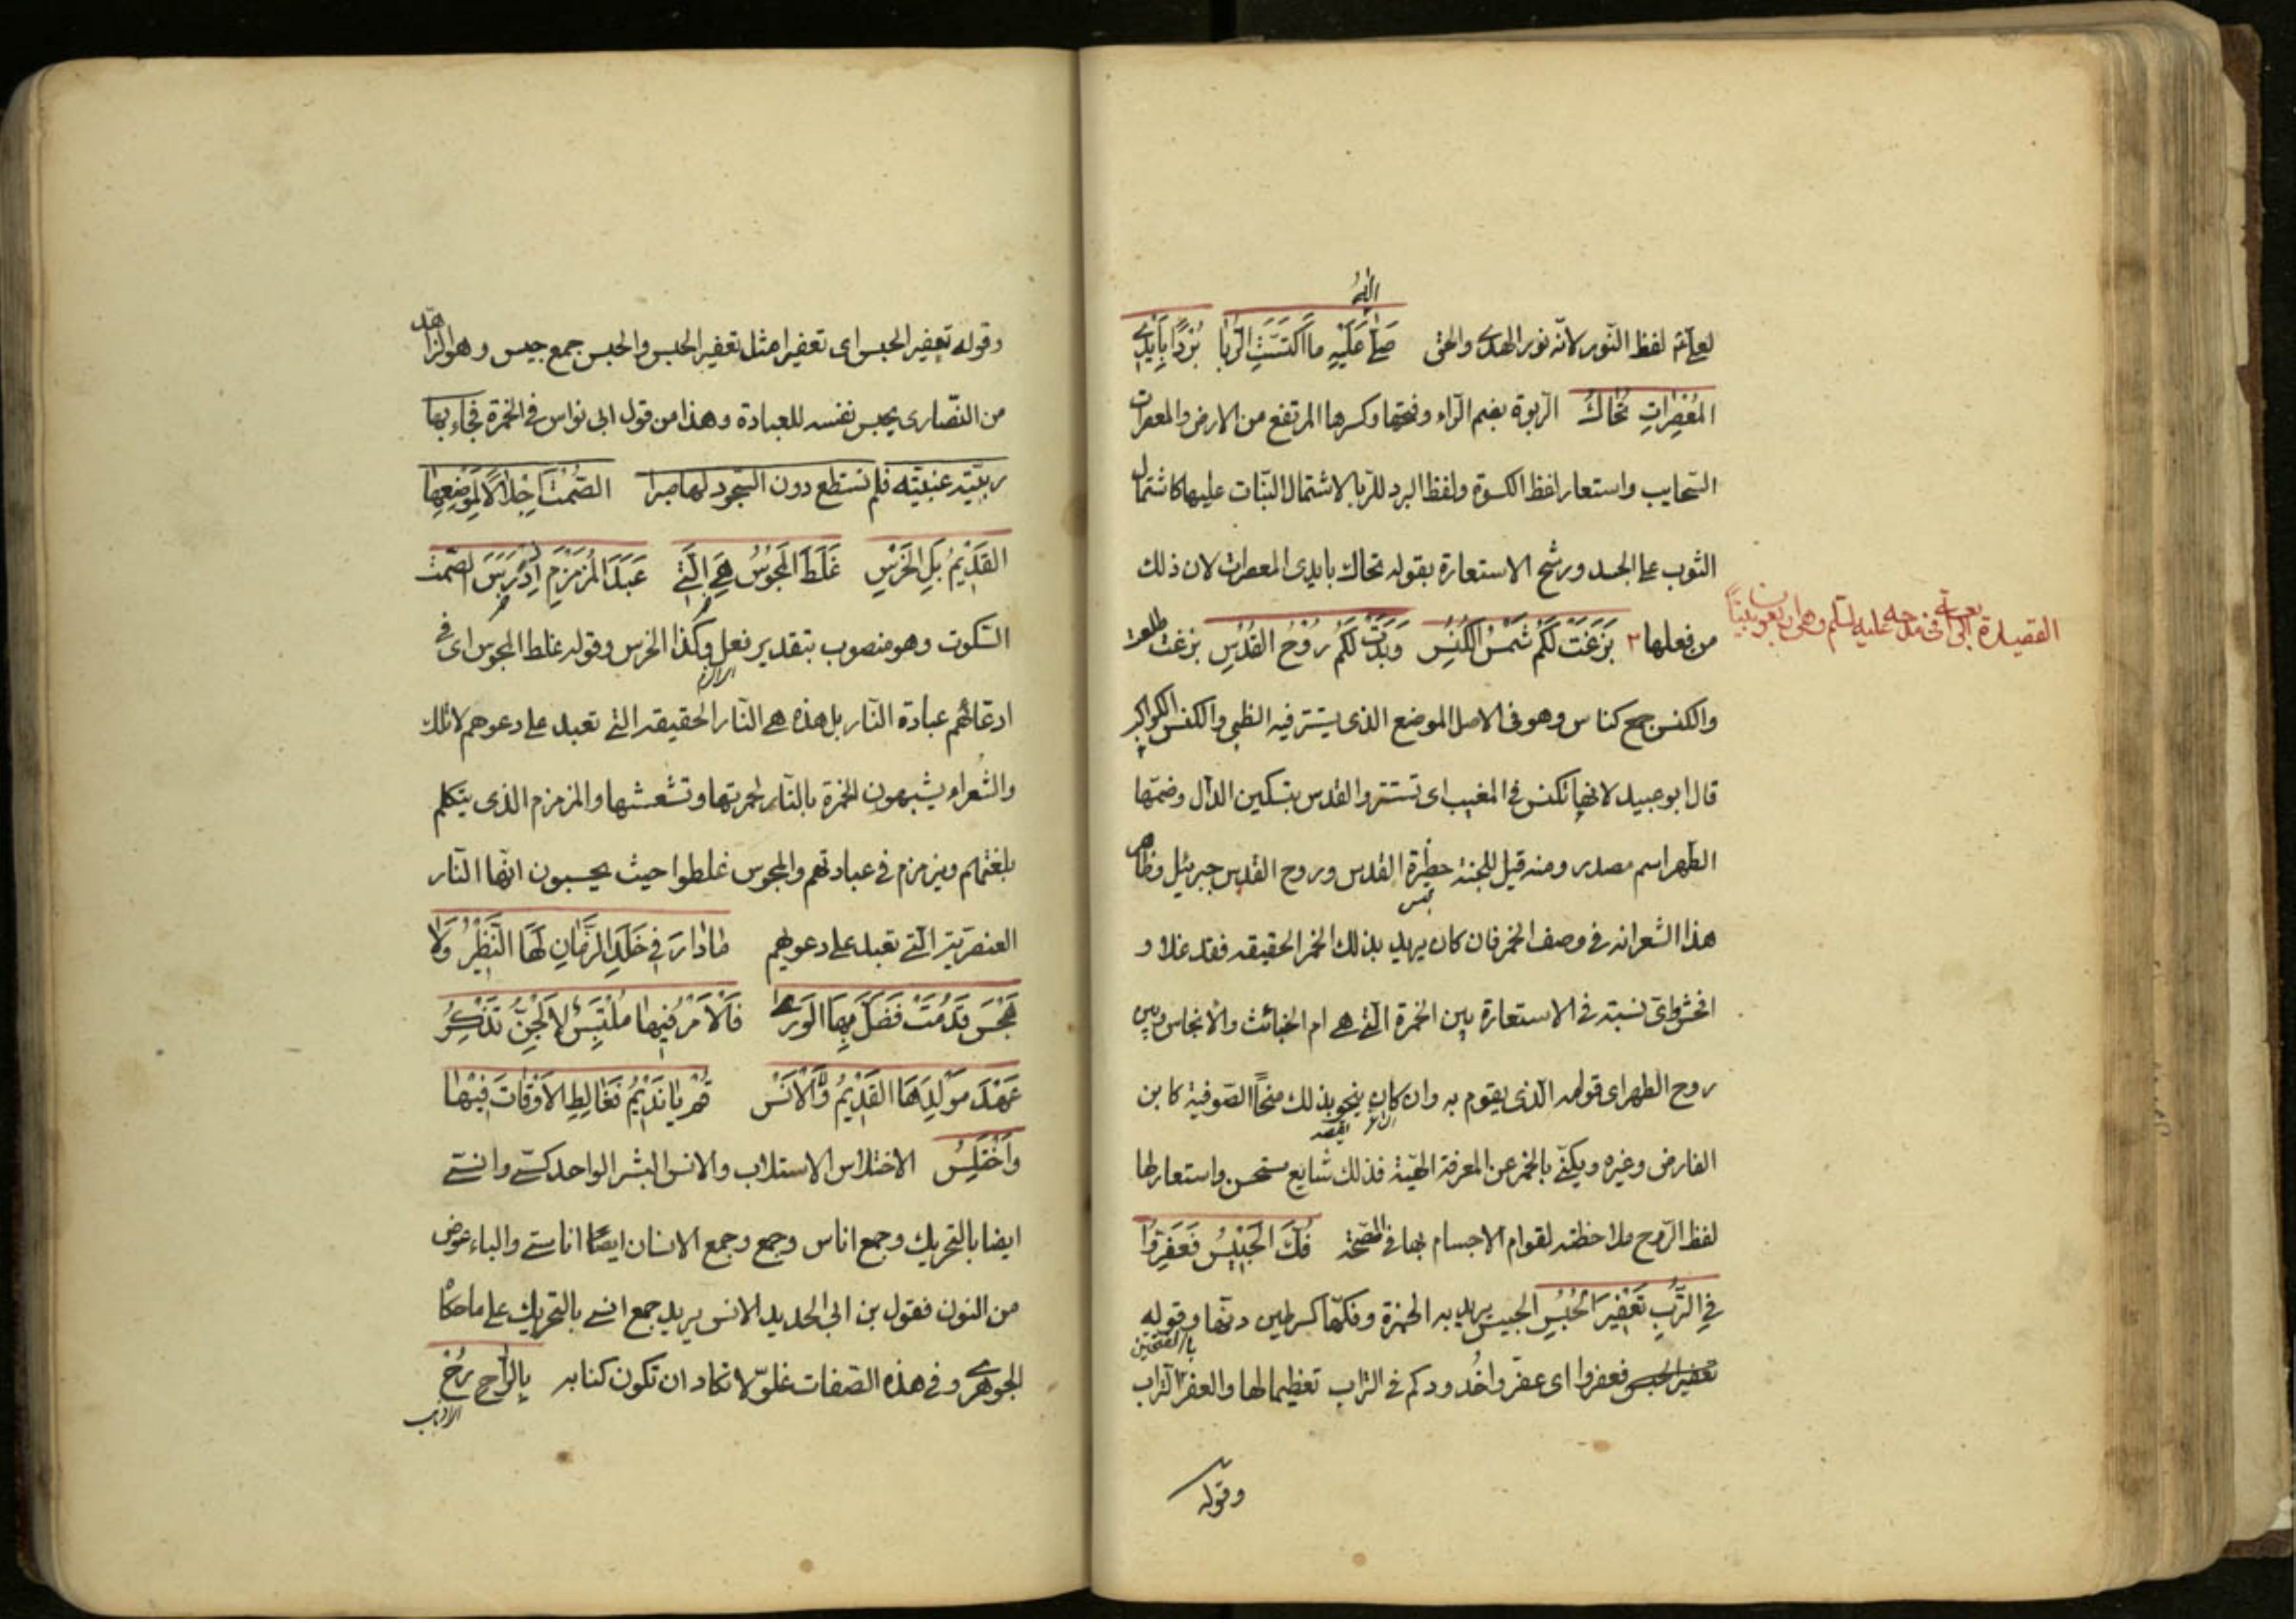 الله
لفظ النّور لانّه نور الهدى والحق صلى عليه ما اكتست الربا بُردًا بايدى
المُعْصِراتِ تُحَاكُ الرّبوة بضم الرّاء وفتحها وكسرها المرتفع من الارض والمعصرات
السّحايب واستعار لفظ الكسوة ولفظ البرد للرّبا لاشتمال النّبات عليها كاشتمال
الثوب على الجسد ورشّح الاستعارة بقوله تحاك بايدى المعصرات لان ذلك
من فعلها ٢ بَزَغَتْ لَكُم شَمْسُ الكُنُسِ وَبَدَتْ لَكُم رُوْحُ القُدْسِ بزغت طلعت
القصيدة الرابعة فى مدحه عليه السلم وهى اربعون بيتاً
والكنس جمع كناس وهو فى الاصل الموضع الذى يستتر فيه الظبى والكنس الكواكب
قال ابو عبيد لانها تكنس فى المغيب اى تستتر والقدس بتسكين الدّال وضمّها
الطهر اسم مصدر ومنه قيل للجنة حظيرة القدس وروح القدس جبرئيل وظاهر
هذا الشعر انه فى وصف الخمر فان كان يريد بذلك الخمر الحقيقه فقد غلا و
افحش واىّ نسبته فى الاستعارة بين الخمرة الّتى هى ام الخبائث والأنجاس وبين
روح الطهر اى قوله الّذى يقوم به وان كان ينحو بذلك منحاً الصّوفية كابن
الفارض وغيره ويكنّى بالخمر عن المعرفة الحقية فذلك شايع مستحسن واستعار لها
لفظ الرّوح ملاحظته لقوام الاجسام بها فى الصّحة فُكَّ الحَبِيْسُ فَعَفِّرُوا
فِى التُّربِ تَعْفِيْرَ الحُبُسِ الحبيس يريد به الخمرة وفكّها كسر طين دنّها وقوله
تعفير الحبس فعفروا اى عفّروا خُدودكم فى التراب تعظيما لها والعفر التراب
وقوله
وقوله تعفير الحبس اى تعفيرا مثل تعفير الحبس والحبس جمع حبيس وهو الزاهد
من النّصارى يحبس نفسه للعبادة وهذا من قول ابى نواس فى الخمرة فجاء بها
عنبيّته فلم نستطع دون السّجود لها صبرا الصَّمْتَ اِجلالاً لِمَوْضِعِهَا
القَدِيْمُ بَلِ الخَرَسِ غَلَطَ المَجُوْسُ هِىَ الَّتِى عَبَدَ المُزَمْزِمُ الصّمت
السّكوت وهو منصوب بتقدير فعل وكذا الخرس وقوله غلط المجوس اى فى
ادعائهم عبادة النّار بل هذه هى النّار الحقيقه التى تعبد على دعوهم لا تلك
والشّعراء يشبهون الخمرة بالنّار لحمرتها وتشعشها والمزمزم الذى يتكلم
ويزمزم فى عبادتهم والمجوس غلطوا حيث يحسبون انّها النّار
العنصرية الّتى تعبد على دعويهم مَا دَارَ فِى خَلَدِ الزَّمَانِ لَهَا النَّظِيْرُ وَلَا
هَجَسَ قَدُمَتْ فَضَلَّ بِهَا الوَرَى فَالأمْرُ فِيهَا مُلْتَبِسٌ لَا الجِنُّ تَذْكُرُ
عَهْدَ مَوْلِدِهَا القَدِيْمُ وَلا الأنَسْ قُمْ يَا نَدِيْمُ نُغَالِطِ الأوْقَاتَ فِيْهَا
وَاَخْتَلِسْ الاختلاس الاستلاب والانس البشر الواحد كسىّ وانسىّ
ايضا بالتحريك وجمع اناس وجمع الانسان ايضًا اناسىّ والياء عوض
من النون فقول بن ابى الحديد الانس يريد جمع انسى بالتحريك على ما حكاه
الجوهرى وفى هذه الصّفات غلوّ لا تكاد ان تكون كنايه بِالرَّاحِ رُحْ